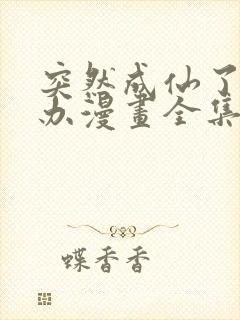 突然成仙了
办漫畫全集
蝶香香